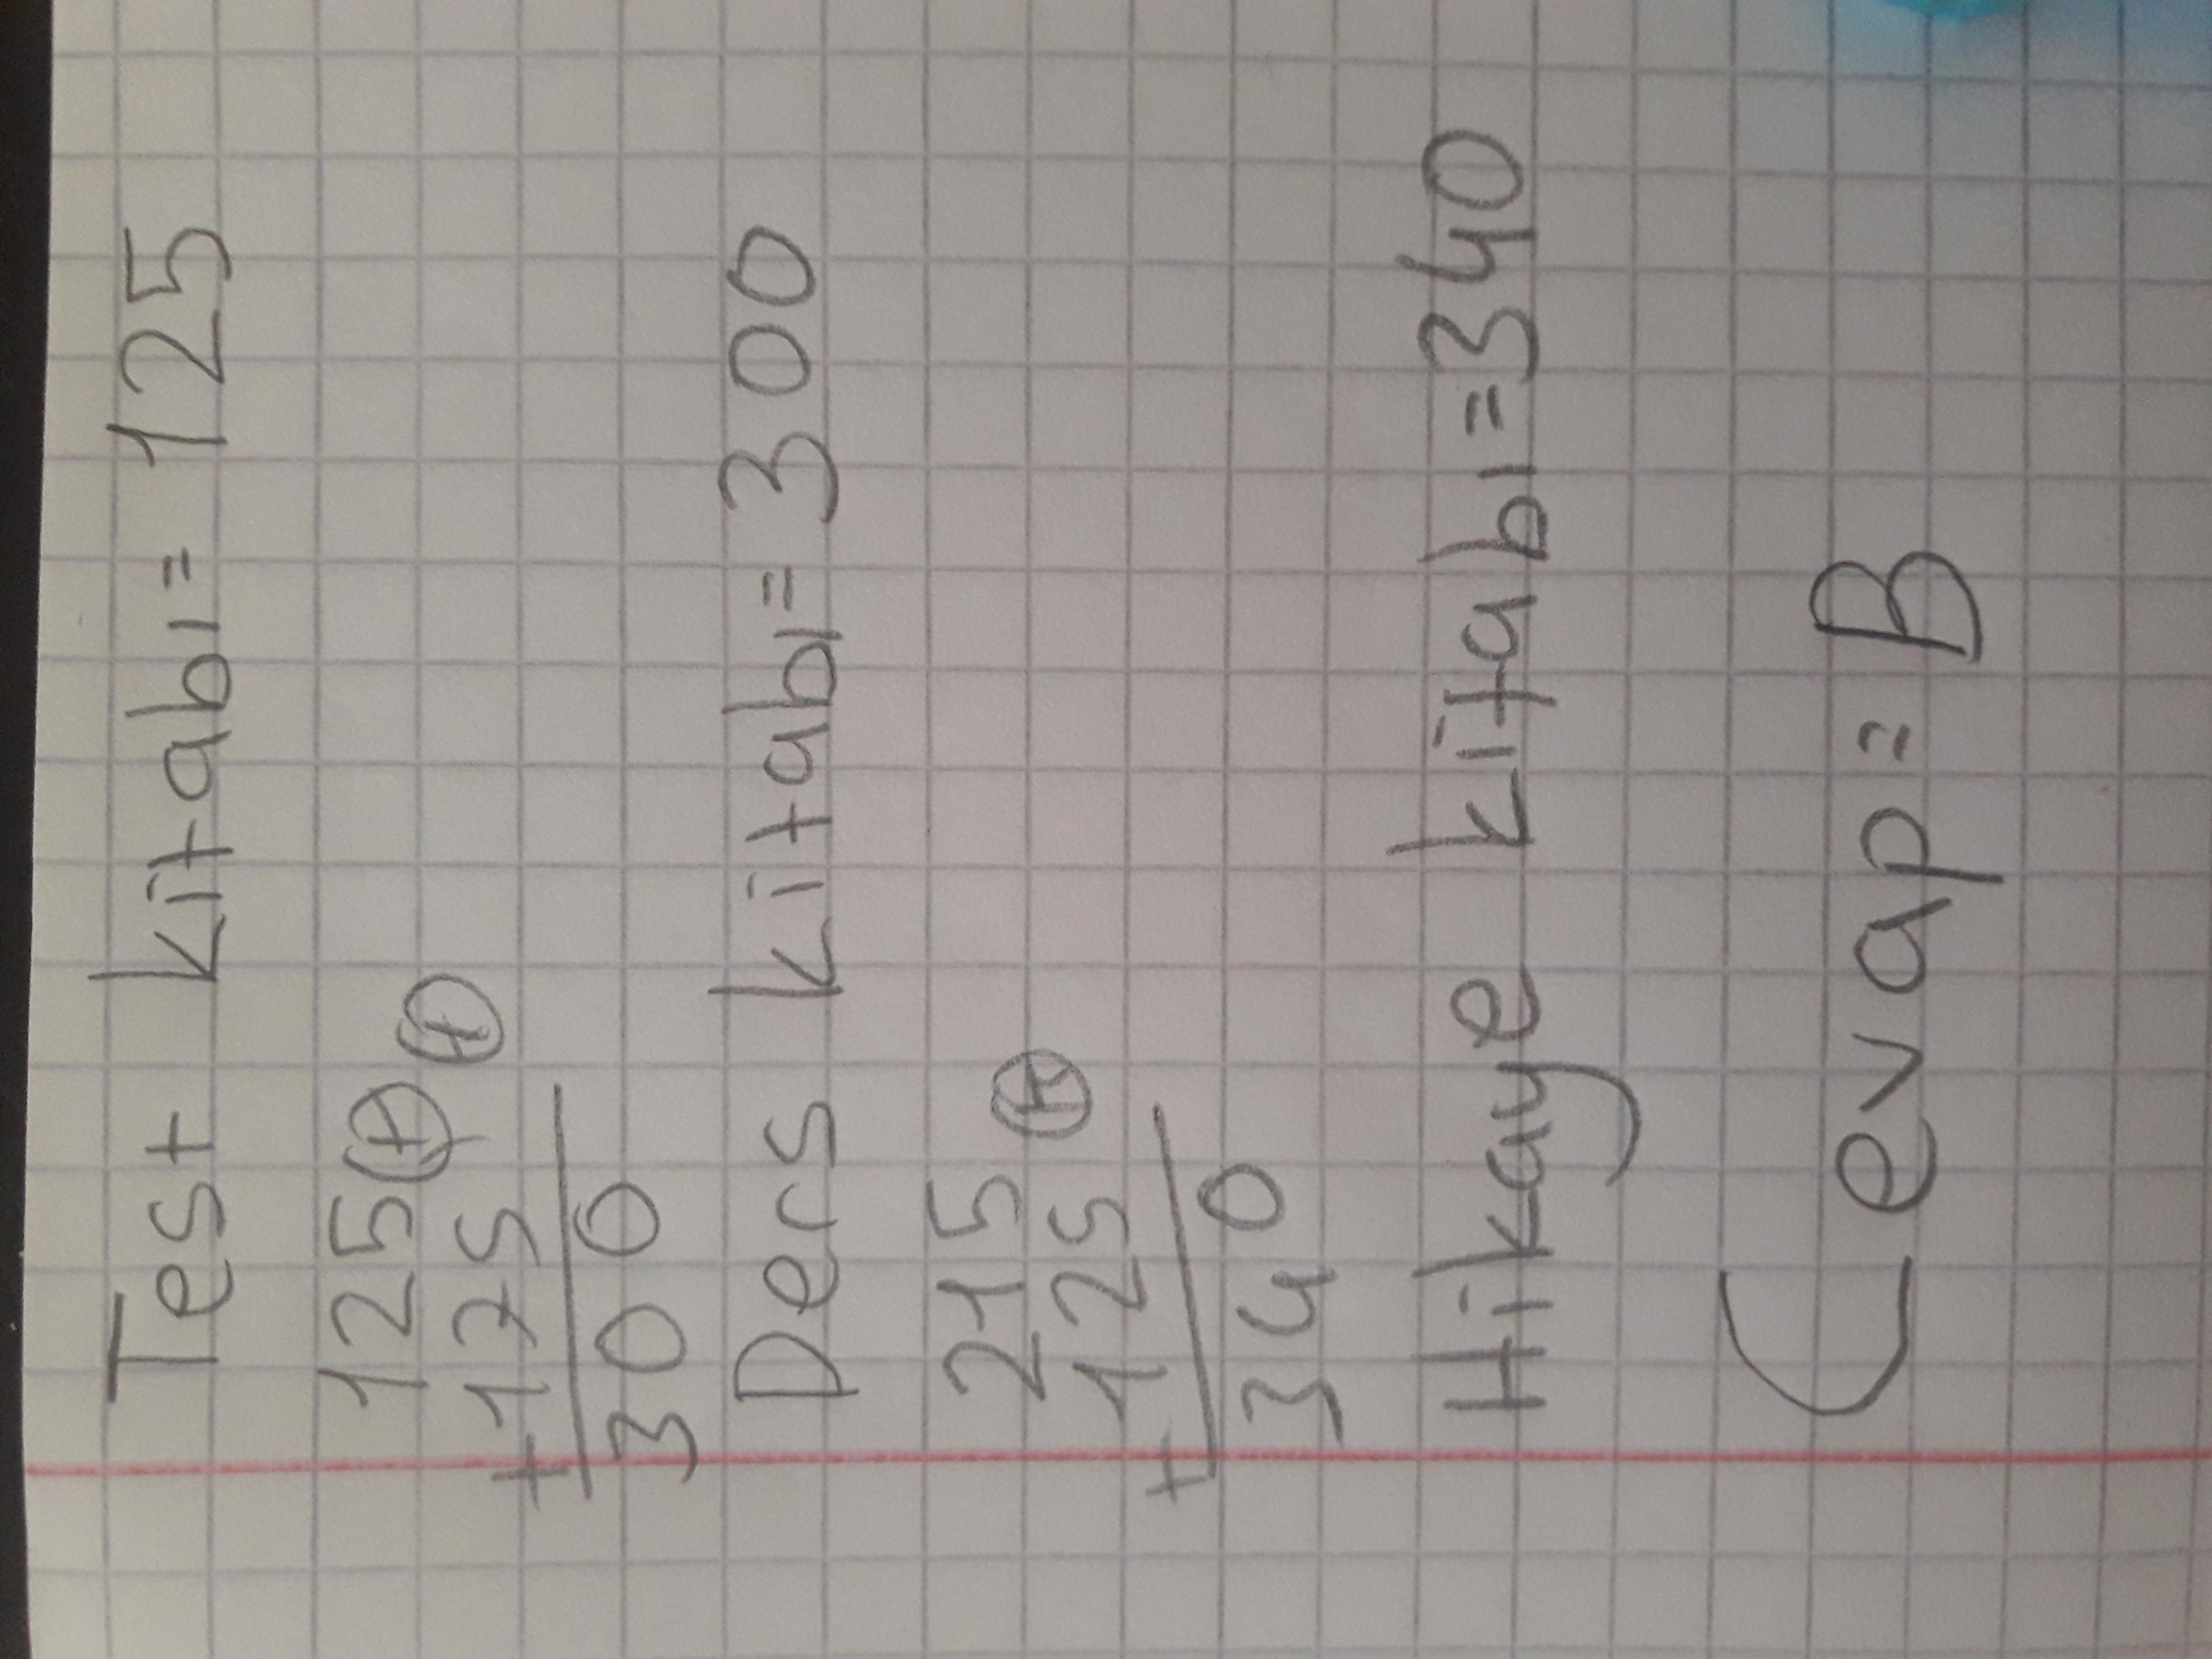 Test kitabı= 125
125 (+) (+)
+ 175
300
Ders kitabı= 300
215 (+)
+ 125
340
Hikaye kitabı=340
Cevap= B